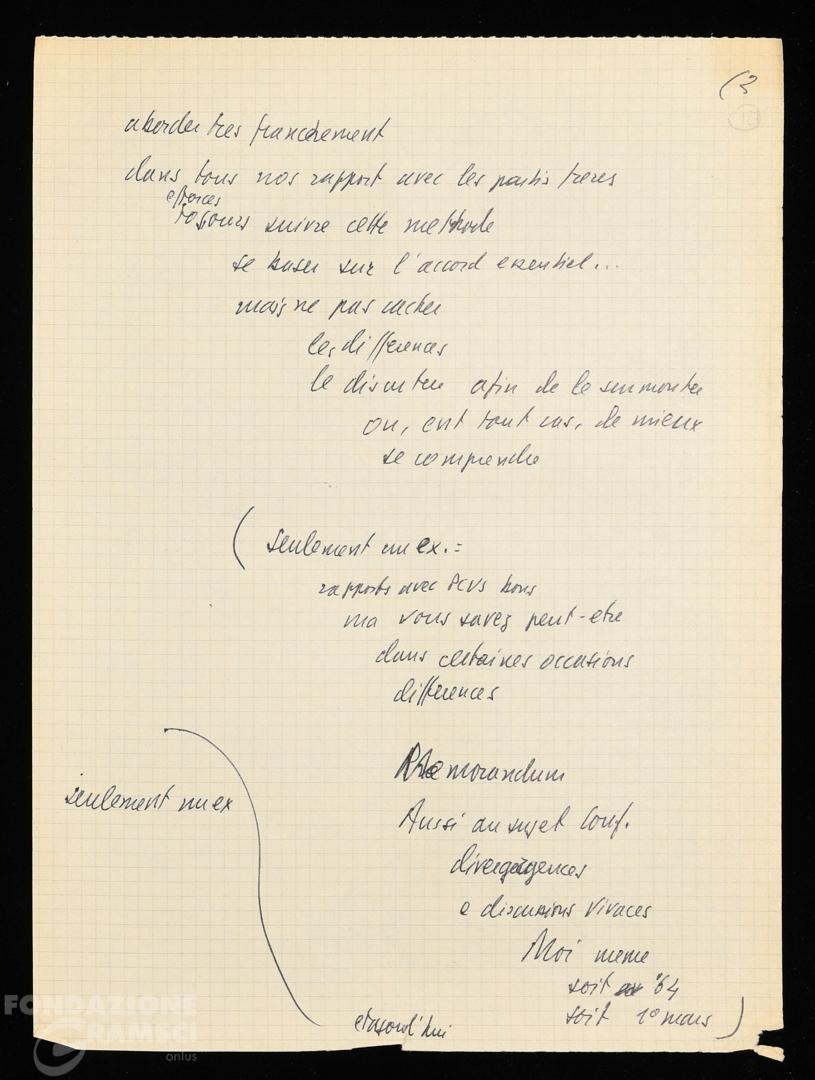 (2
aborder tres francèrement
dans tous nos rapport avec les partis freres
efforces
tojours suivre cette methode
se baser sur l'accord esentiel...
mais ne pas cacher
les differences
le discuter afin de le surmonter
ou, ent tout cas, de mieux
se comprendre
( seulement un ex. =
rapports avec PCUS bons
ma vous savez peut-etre
dans certaines occasions
differences
Memorandum
seulement un ex
Aussi au sujet Conf.
divergences
e discussions vivaces
Moi meme
soit '64
soit 1° mars )
et aujourd'hui
FONDAZIONE
GRAMSCI
onlus